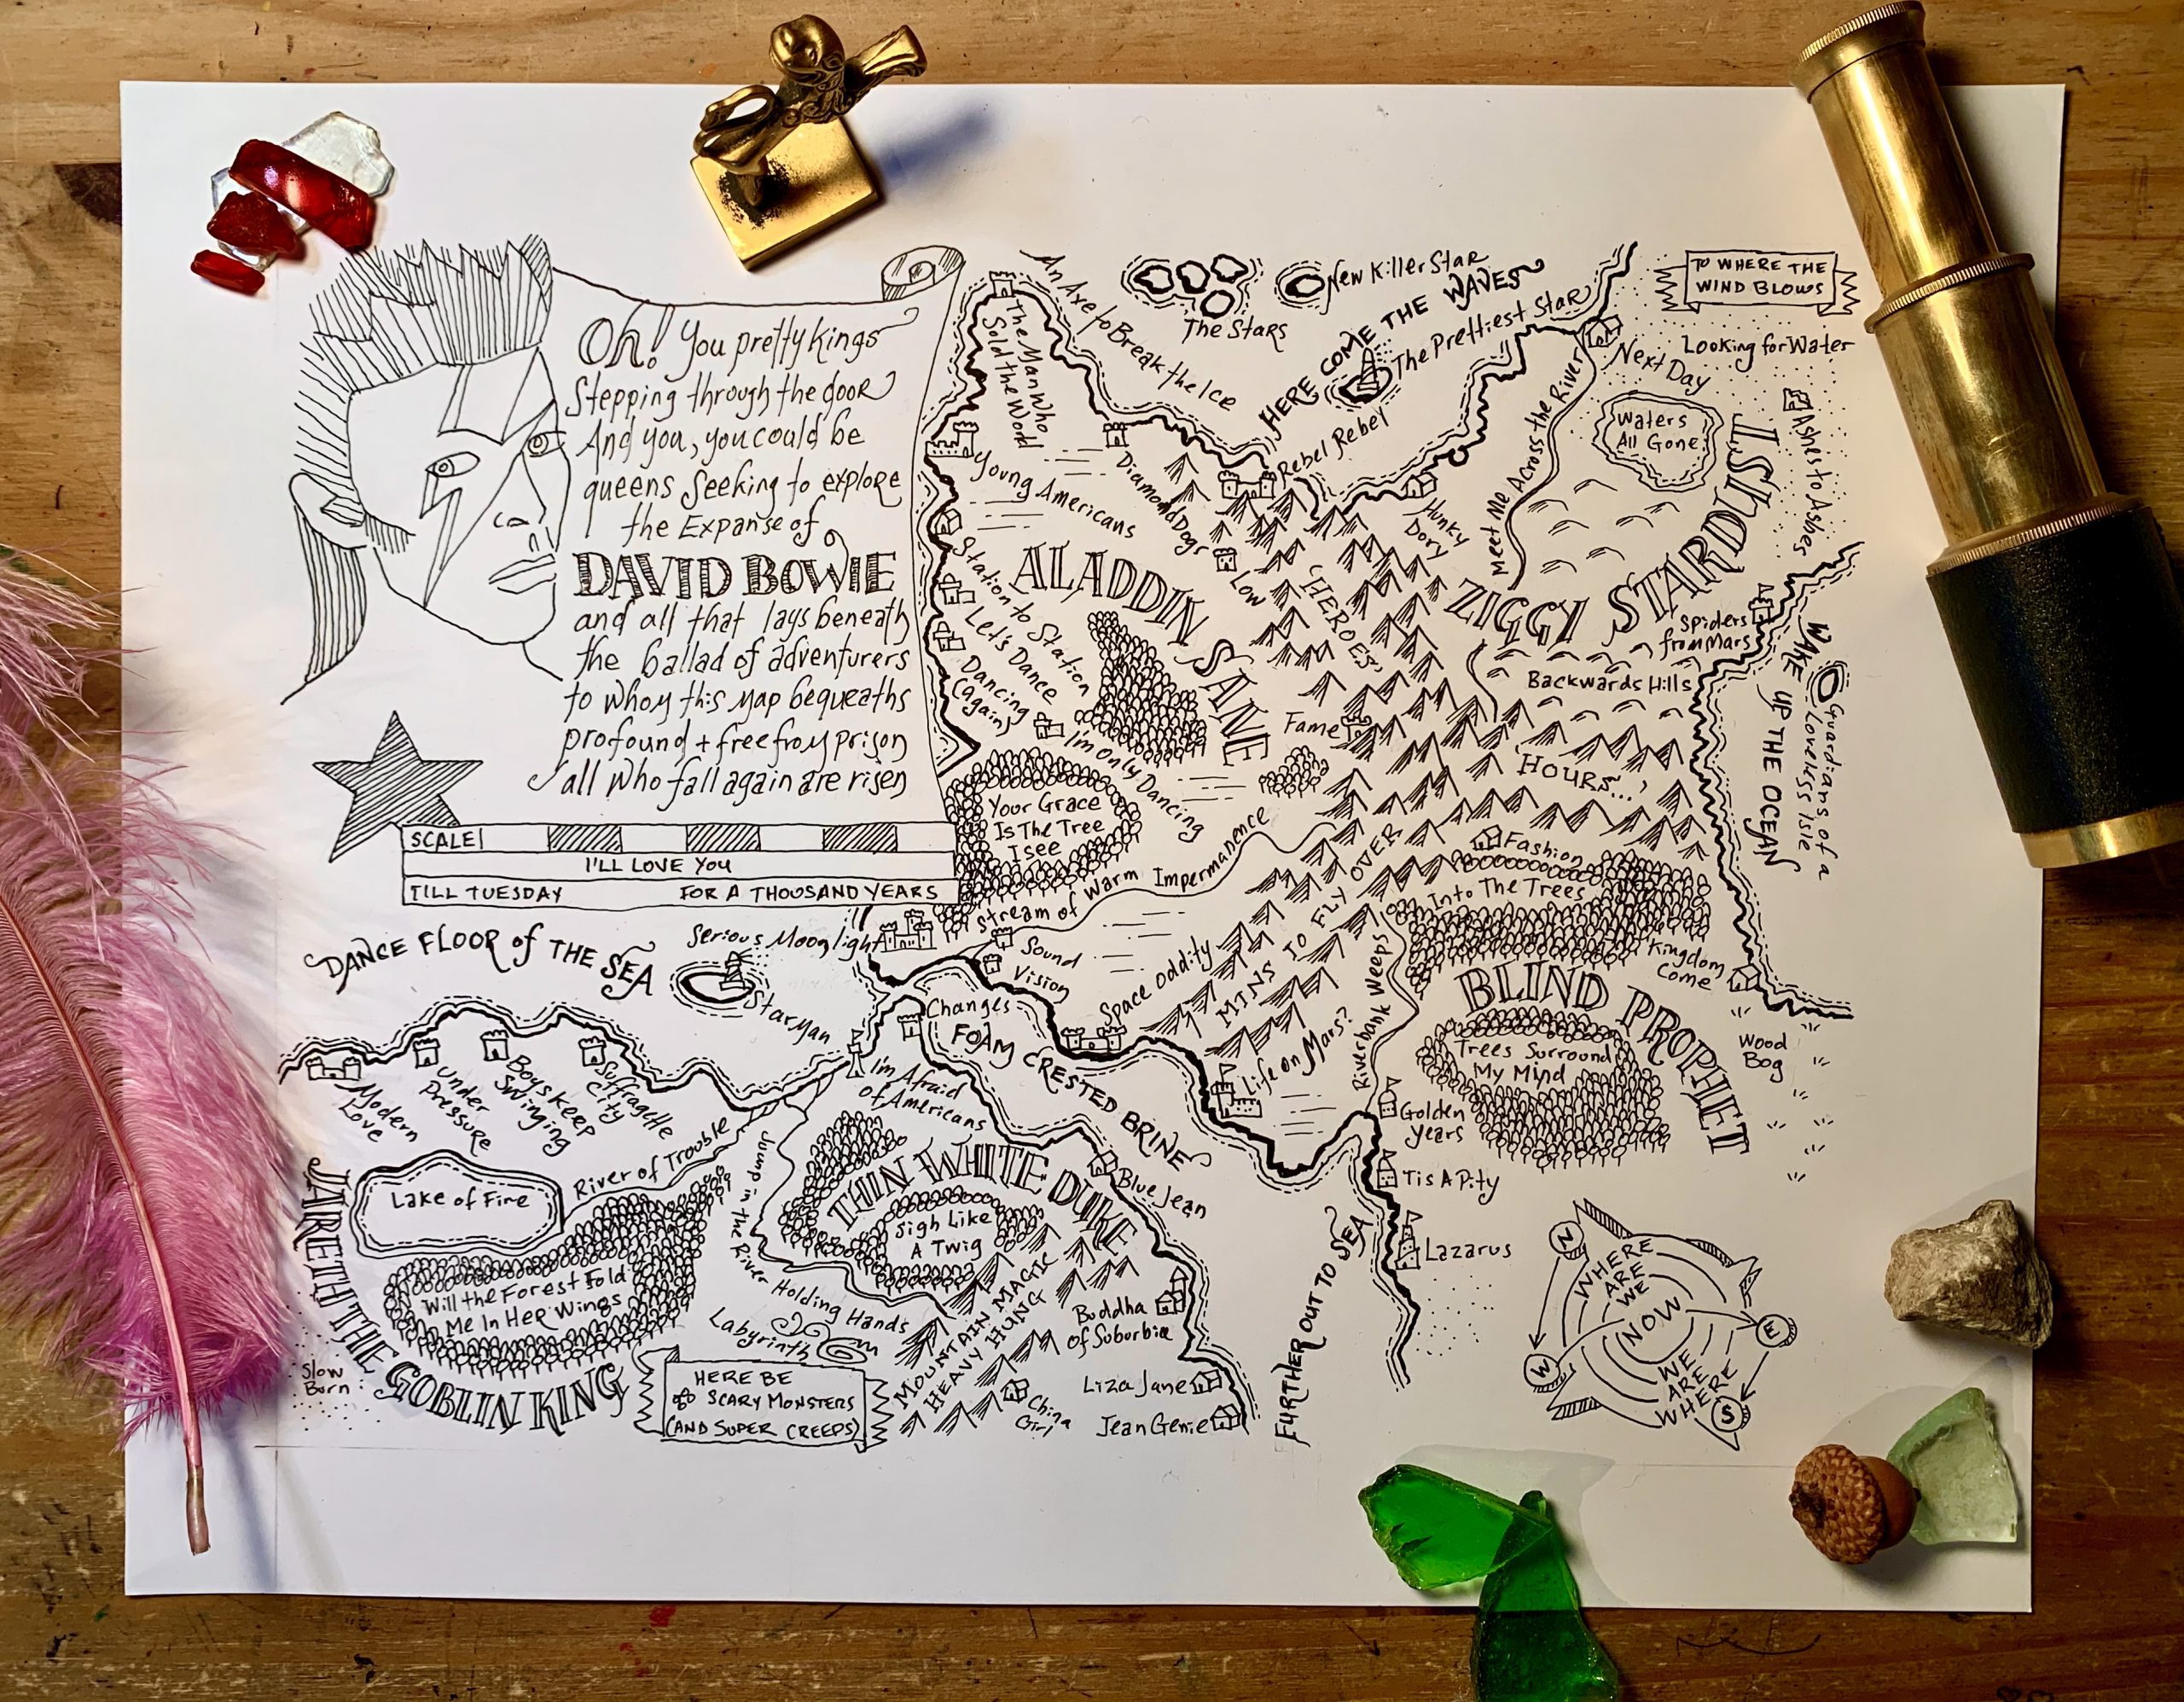 Oh! You pretty kings
Stepping through the door
And you, you could be
queens seeking to explore
the Expanse of
DAVID BOWIE
and all that lays beneath
the ballad of adventurers
to whom this map bequeaths
profound + free from prison
all who fall again are risen
SCALE
I'LL LOVE YOU
TILL TUESDAY FOR A THOUSAND YEARS
An Axe to Break the Ice
The Stars
New Killer Star
HERE COME THE WAVES
The Prettiest Star
TO WHERE THE
WIND BLOWS
Looking for Water
Next Day
Waters
All Gone
Ashes to Ashes
The Man Who
Sold the World
Young Americans
Diamond Dogs
Rebel Rebel
Hunky
Dory
Meet Me Across the River
Low
"HEROES"
ALADDIN SANE
ZIGGY STARDUST
Station to Station
Let's Dance
Dancing
(Again)
I'm Only Dancing
Spiders
from Mars
Backwards Hills
WAKE UP THE OCEAN
Guardians of a
Loveless Isle
Fame
HOURS...'
Your Grace
Is The Tree
I see
Stream of Warm Impermanence
MTNS TO FLY OVER
Fashion
Into The Trees
Kingdom
Come
BLIND PROPHET
Trees Surround
My Mind
Wood
Bog
DANCE FLOOR of THE SEA
Serious Moonlight
Starman
Sound
Vision
Space Oddity
Changes
FOAM CRESTED BRINE
Life on Mars?
Riverbank Weeps
Golden
Years
Tis A Pity
Lazarus
FURTHER OUT TO SEA
Modern
Love
Under
Pressure
Boys Keep
Swinging
Suffragette
City
I'm Afraid
of Americans
Lake of Fire
River of Trouble
Jump in the River Holding Hands
THIN WHITE DUKE
Sigh Like
A Twig
Blue Jean
JARETH THE GOBLIN KING
Will the Forest Fold
Me In Her Wings
Slow
Burn
Labyrinth
HERE BE
SCARY MONSTERS
(AND SUPER CREEPS)
MOUNTAIN MAGIC
HEAVY HUNG
Buddha
of Suburbia
China
Girl
Liza Jane
Jean Genie
N
WHERE
ARE
WE
NOW
E
W
WE
ARE
WHERE
S